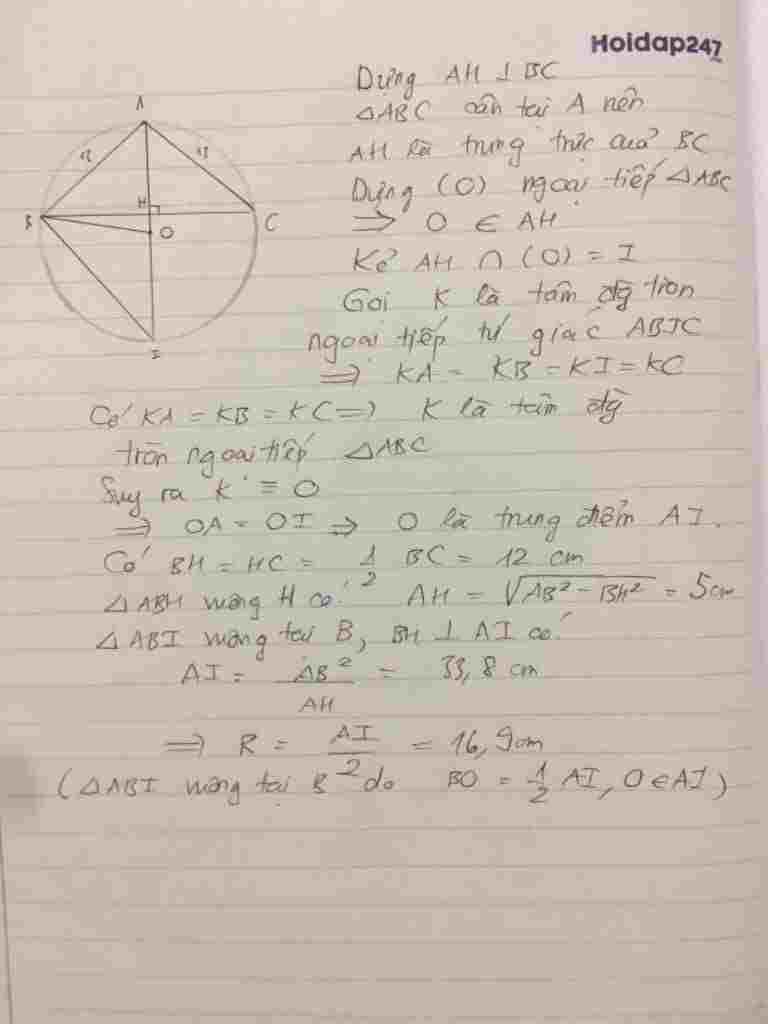 Hoidap247
Dựng AH ⊥ BC
△ABC cân tại A nên
AH là trung trực của BC
Dựng (O) ngoại tiếp △ABC
⇒ O ∈ AH
Kẻ AH ∩ (O) = I
Gọi K là tâm đg tròn
ngoại tiếp tứ giác ABIC
⇒ KA = KB = KI = KC
Có KA = KB = KC ⇒ K là tâm đg
tròn ngoại tiếp △ABC
Suy ra K ≡ O
⇒ OA = OI ⇒ O là trung điểm AI.
Có BH = HC = 1/2 BC = 12 cm
△ABH vuông H có: AH = √(AB² - BH²) = 5cm
△ABI vuông tại B, BH ⊥ AI có:
AI = AB²/AH = 33,8 cm
⇒ R = AI/2 = 16,9cm
(△ABI vuông tại B do BO = 1/2 AI, O ∈ AI)
A
13 13
H
B O C
I